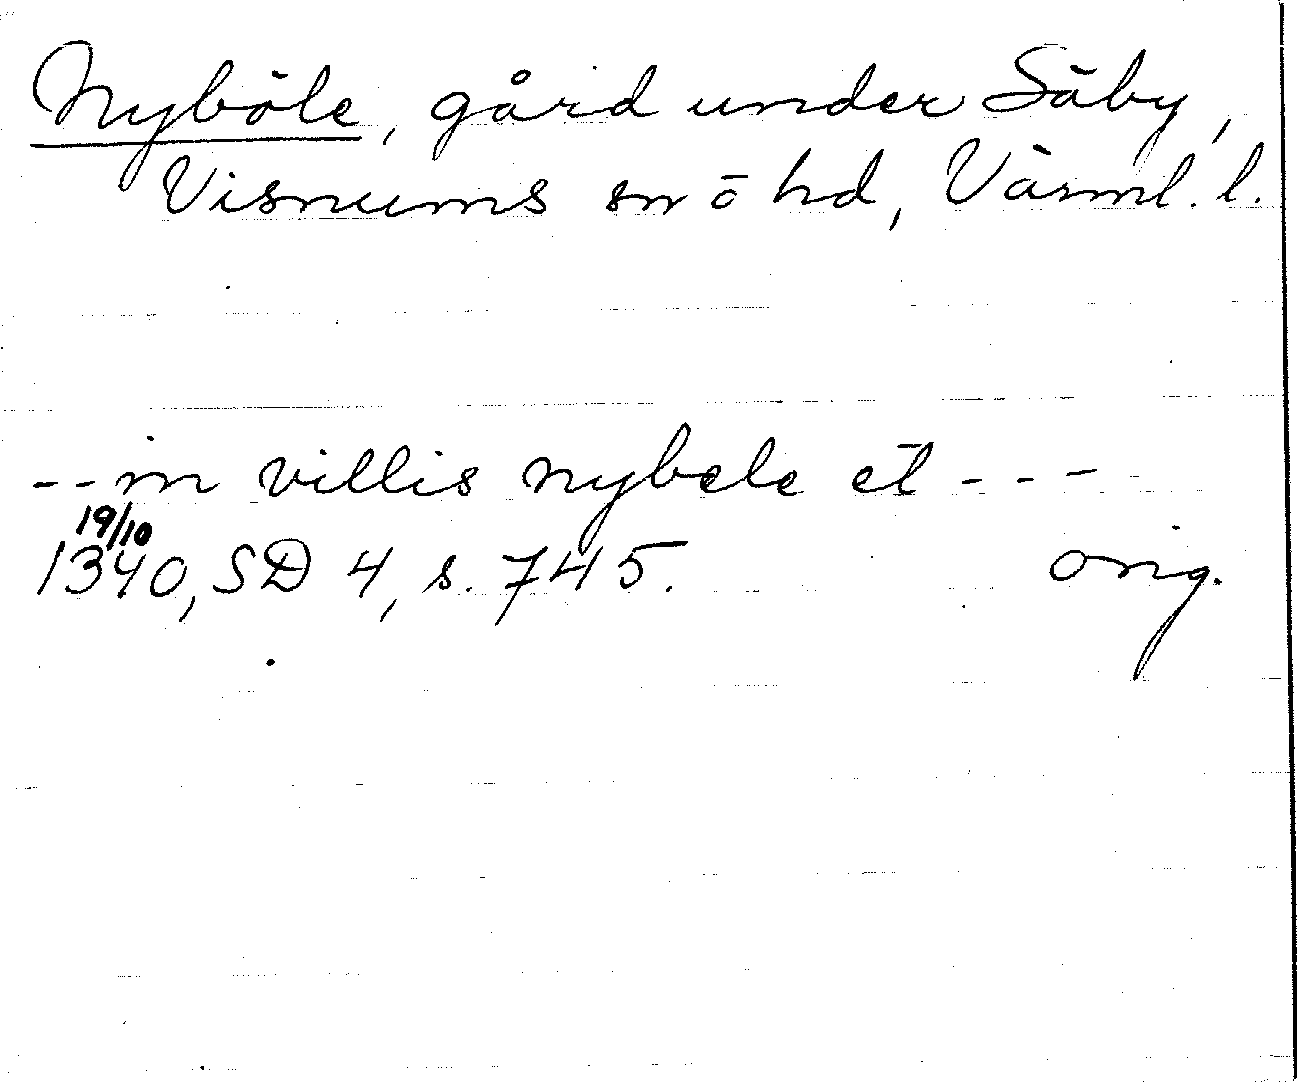 Nyböle, gård under Säby,
Visnums sn ō hd, Värml. l.
--in villis nybele et ---
19/10
1340, SD 4, s. 745. orig.